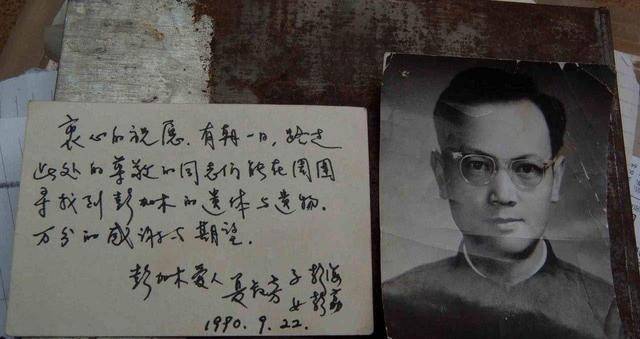 衷心的祝愿。有朝一日，路过
此处的尊敬的同志们能在周围
寻找到彭加木的遗体与遗物。
万分的感谢与期望。
彭加木爱人 夏叔芳 子 彭海
女 彭荔
1990.9.22.